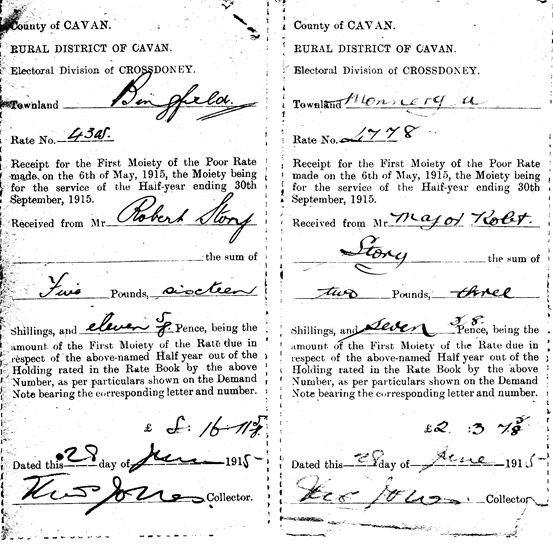 County of CAVAN.
RURAL DISTRICT OF CAVAN.
Electoral Division of CROSSDONEY.
Townland Bingfield.
Rate No.
Receipt for the First Moiety of the Poor Rate
made, on the 6th of May, 1915, the Moiety being
for the service of the Half-year ending 30th
September, 1915.
Received from Mr Robert Story
the sum of
Five Pounds, sixteen
Shillings, and eleven 5/8 Pence, being the
amount of the First Moiety of the Rate due in
respect of the above-named Half year out of the
Holding rated in the Rate Book by the above
Number, as per particulars shown on the Demand
Note bearing the corresponding letter and number.
£ 5: 16 11 5/8
Dated this 28 day of June 1915
Thos Jones Collector.
County of CAVAN.
RURAL DISTRICT OF CAVAN.
Electoral Division of CROSSDONEY.
Townland
Rate No. 4778
Receipt for the First Moiety of the Poor Rate
made, on the 6th of May, 1915, the Moiety being
for the service of the Half-year ending 30th
September, 1915.
Received from Mr Major Robt.
Story the sum of
two Pounds, three
Shillings, and seven 3/8 Pence, being the
amount of the First Moiety of the Rate due in
respect of the above-named Half year out of the
Holding rated in the Rate Book by the above
Number, as per particulars shown on the Demand
Note bearing the corresponding letter and number.
£2 : 3 7 3/8
Dated this 28 day of June 1915
Thos Jones. Collector